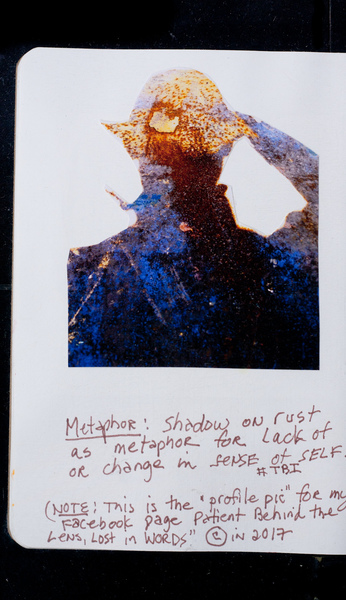 Metaphor: Shadow on rust
as metaphor for Lack of
or change in sense of SELF.
#TBI
(NOTE: This is the "profile pic" for my
Facebook page Patient Behind the
Lens, Lost in WORDS" © in 2017